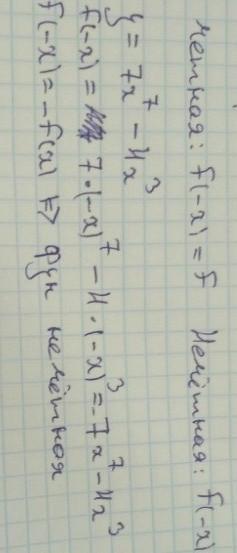 четная: f(-x) = f Нечётная: f(-x)
y = 7x⁷ - 4x³
f(-x) = 7·(-x)⁷ - 4·(-x)³ = -7x⁷ - 4x³
f(-x) = -f(x) => фун нечётная